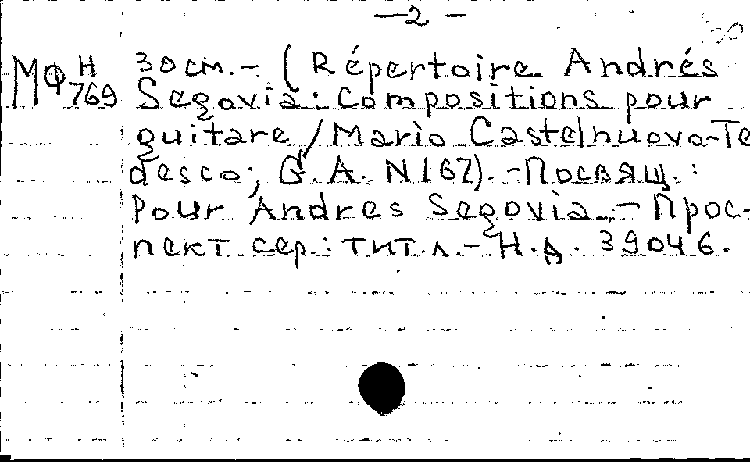 — 2 —
МФ Н 769
30 см. – (Répertoire Andrés
Segovia: Compositions pour
guitare / Mario Castelnuovo-Te
desco; G. A. N 167). – Посвящ.:
Pour Andres Segovia. – Прос-
пект сер.: тит л. – Н. д. 39046.